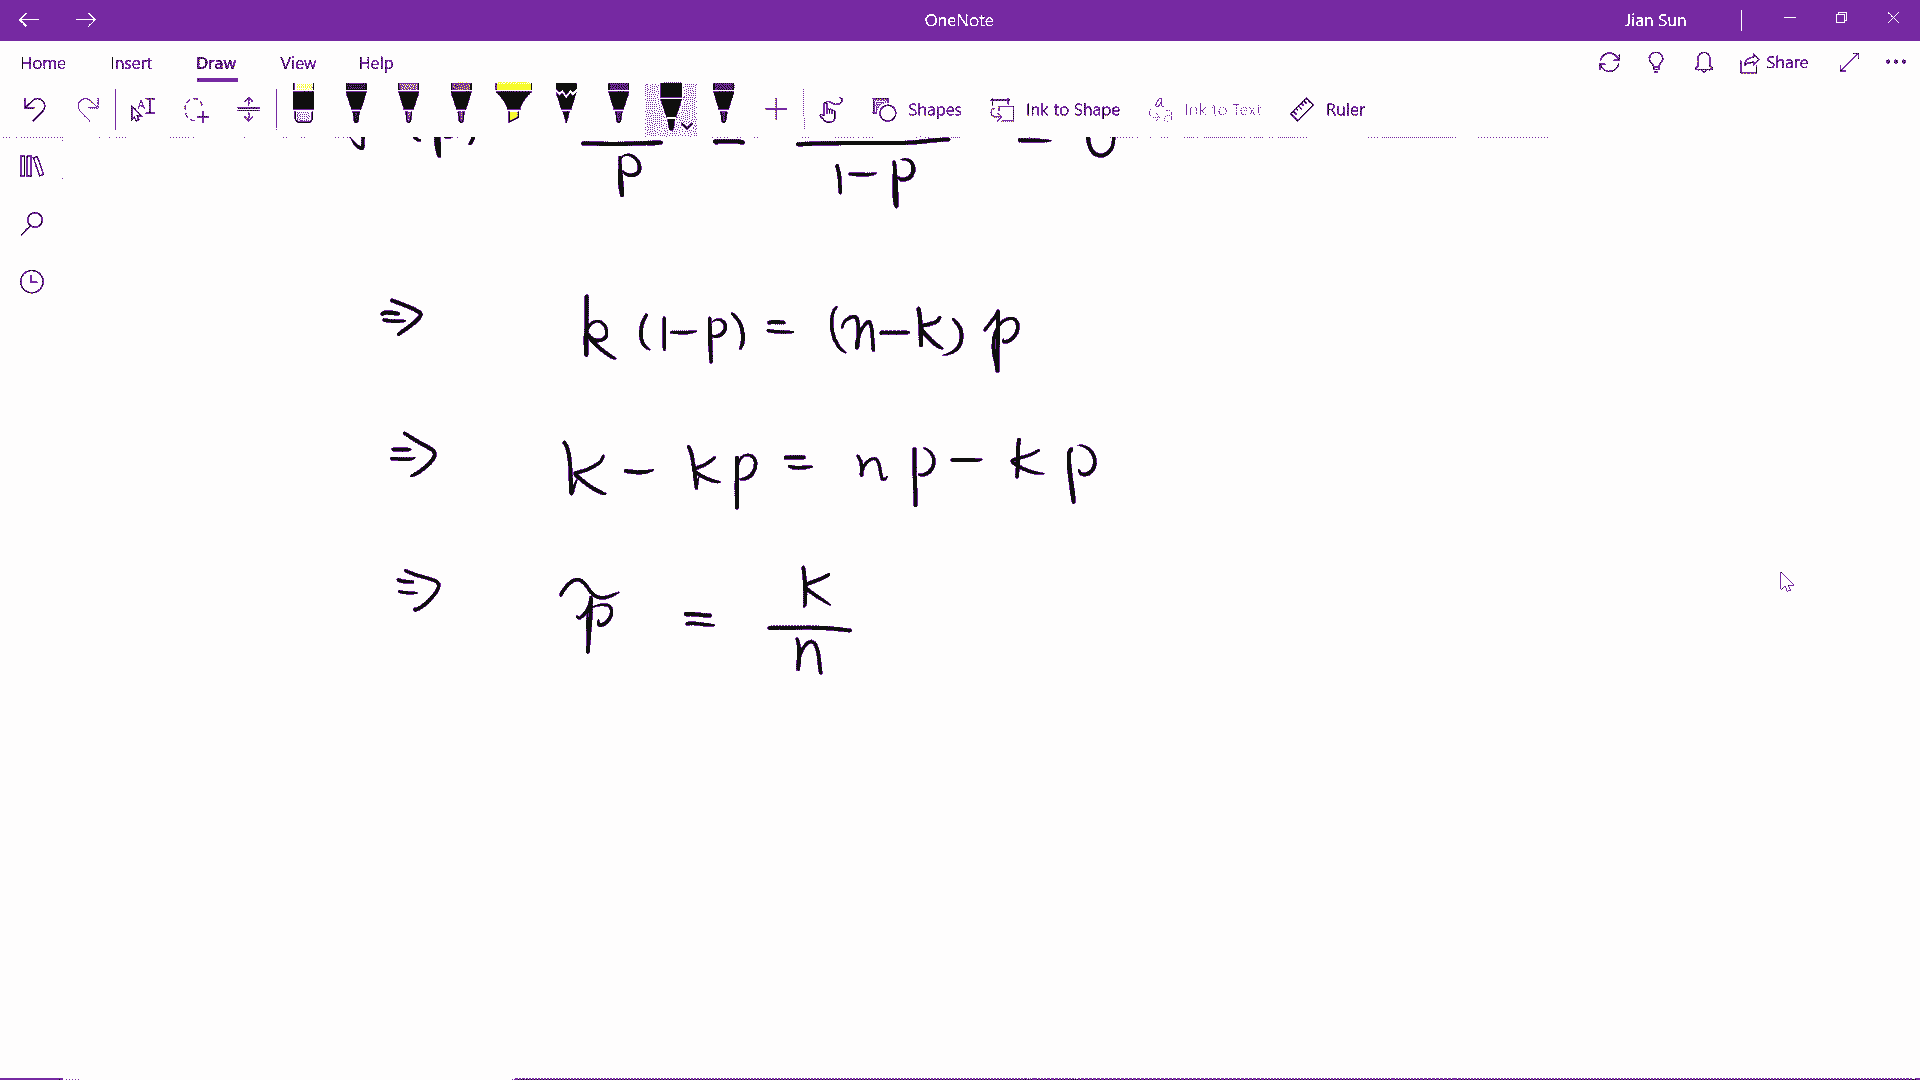 OneNote
Jian Sun
Home Insert Draw View Help
Share
Shapes Ink to Shape Ink to Text Ruler
p 1-p
⇒ k (1-p) = (n-k) p
⇒ k - kp = np - kp
⇒ p̃ = k/n